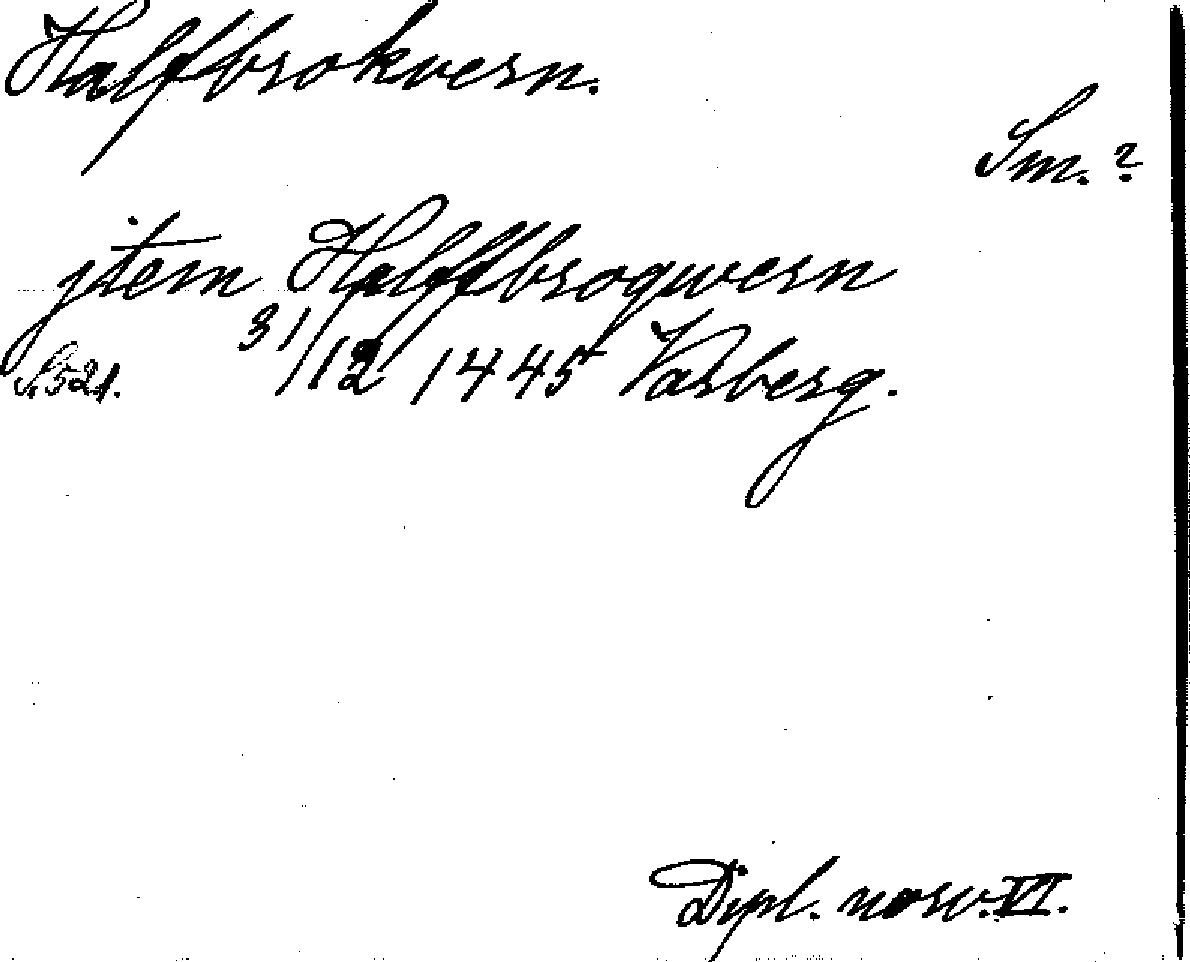 Halfbrokvern.
Sm.?
jtem Halffbroqwern
S. 521. 31/12 1445 Varberg.
Dipl. norv. VI.